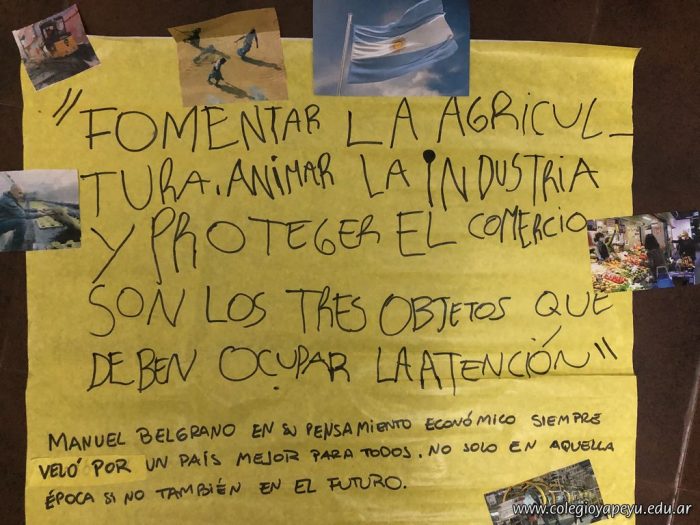 "FOMENTAR LA AGRICUL-
TURA, ANIMAR LA INDUSTRIA
Y PROTEGER EL COMERCIO
SON LOS TRES OBJETOS QUE
DEBEN OCUPAR LA ATENCIÓN"
MANUEL BELGRANO EN SU PENSAMIENTO ECONÓMICO SIEMPRE
VELÓ POR UN PAÍS MEJOR PARA TODOS. NO SOLO EN AQUELLA
ÉPOCA SI NO TAMBIÉN EN EL FUTURO.
www.colegioyapeyu.edu.ar